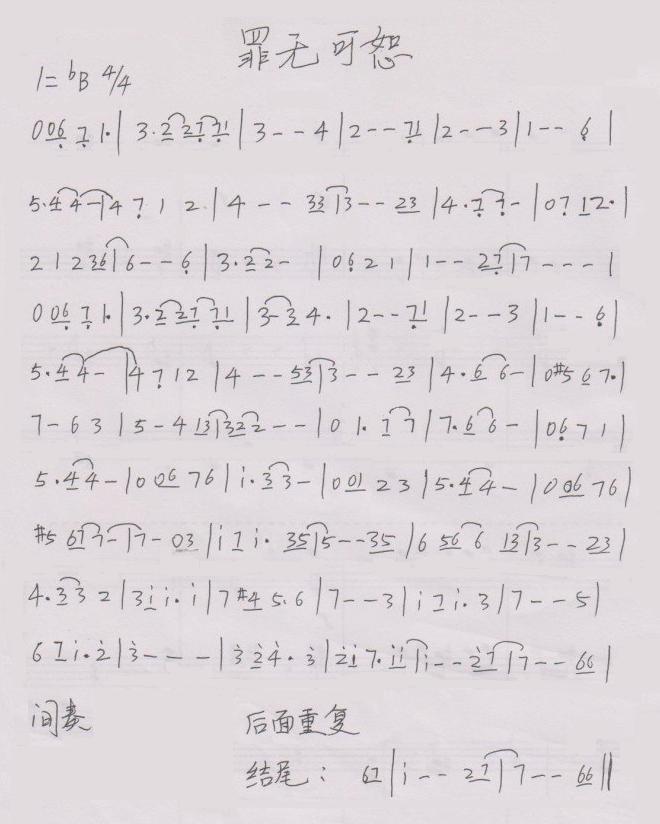 罪无可恕
1= ᵇB 4/4
0 06 7 1· | 3·2 27 71 | 3 - - 4 | 2 - - 71 | 2 - - 3 | 1 - - 6 |
5·4 4 - | 4 7 1 2 | 4 - - 33 | 3 - - 23 | 4·7 7 - | 0 7 12· |
2 1 2 36 | 6 - - 6 | 3·2 2 - | 0 6 2 1 | 1 - - 27 | 7 - - - |
0 06 7 1· | 3·2 27 71 | 3 - 3 4· | 2 - - 71 | 2 - - 3 | 1 - - 6 |
5·4 4 - | 4 7 1 2 | 4 - - 53 | 3 - - 23 | 4·6 6 - | 0 #5 6 7· |
7 - 6 3 | 5 - 4 13 | 32 2 - - | 0 1· 7 7 | 7·6 6 - | 0 6 7 1 |
5·4 4 - | 0 06 7 6 | i·3 3 - | 0 01 2 3 | 5·4 4 - | 0 06 7 6 |
#5 67 7 - | 7 - 03 | i 1 i· 35 | 5 - - 35 | 6 56 6 13 | 3 - - 23 |
4·3 3 2 | 3 i i·i | 7 #4 5·6 | 7 - - 3 | i 1 i·3 | 7 - - 5 |
6 1 i·2̇ | 3̇ - - - | 3̇ 2̇ 4̇·3̇ | 2̇i 7·ii | i - - 2̇7 | 7 - - 66 |
间奏 后面重复
结尾： 67 | i - - 27 | 7 - - 66 ‖